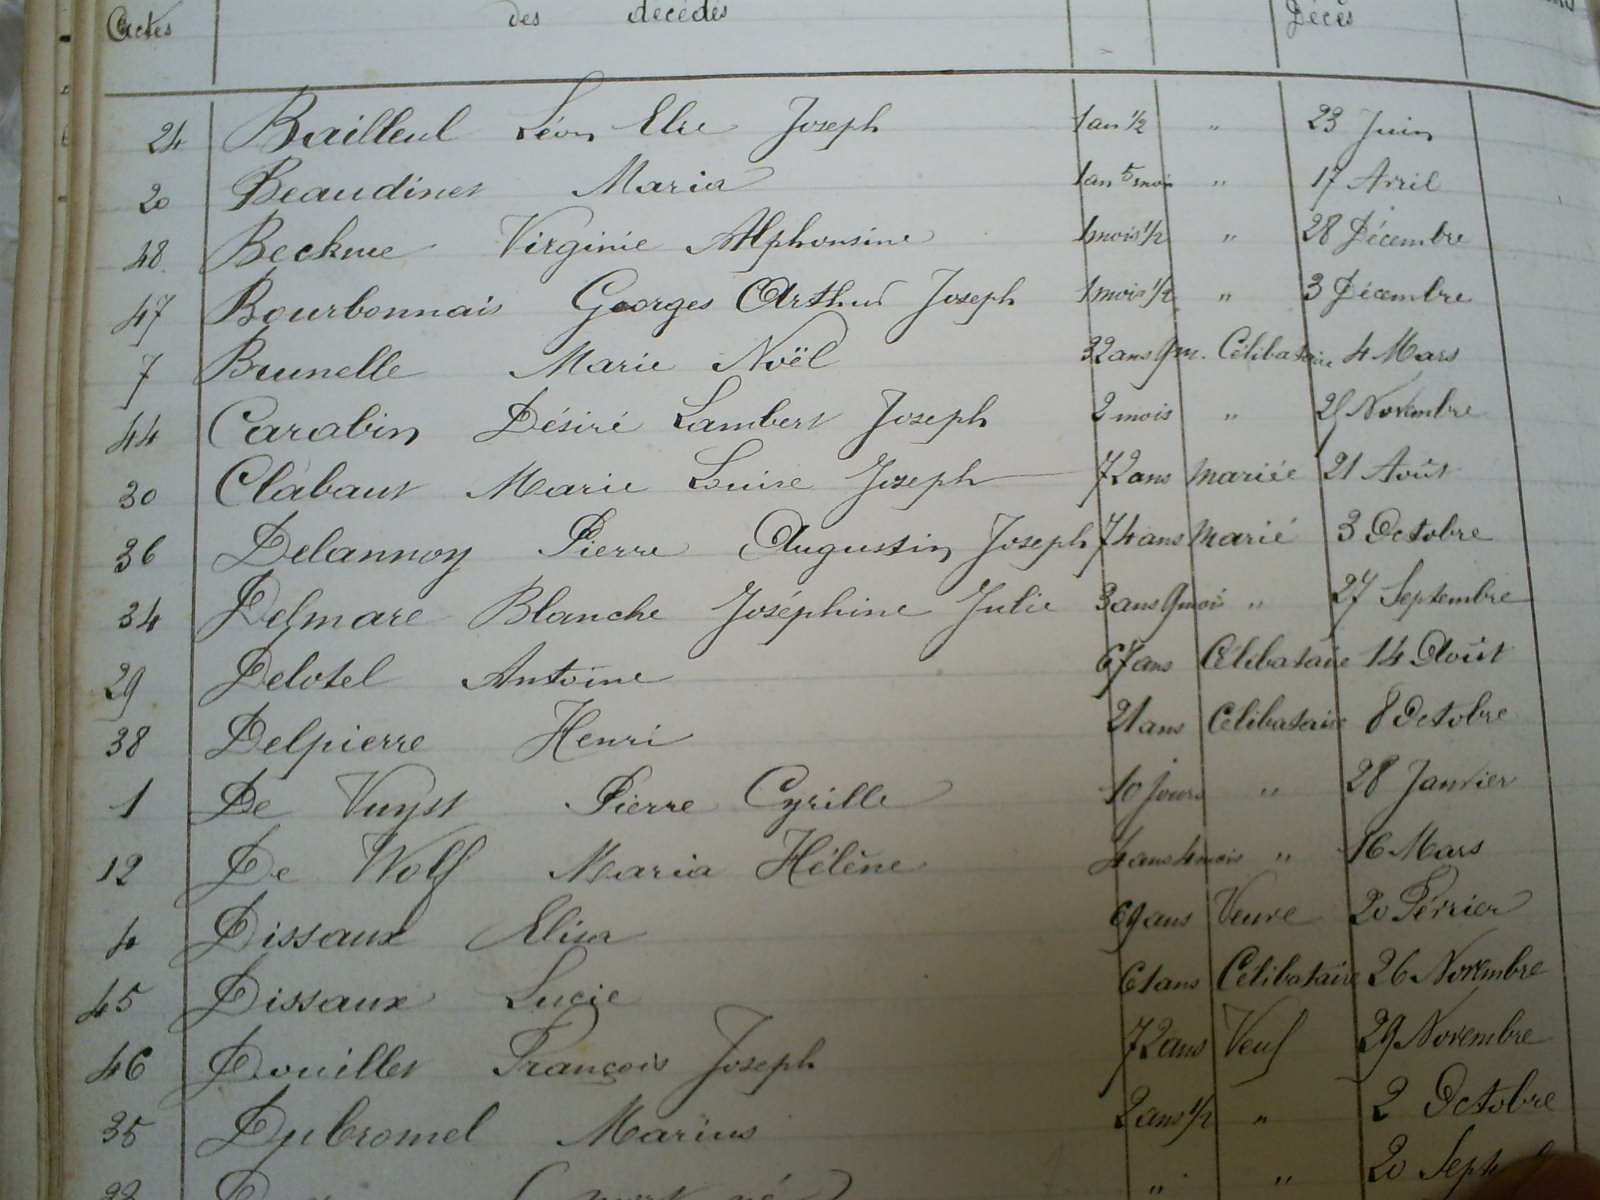 Actes des décédés Décès
24 Bailleul Léon Elie Joseph 1 an 1/2 " 23 Juin
20 Beaudinet Maria 1 an 5 mois " 17 Avril
48 Beckue Virginie Alphonsine 1 mois 1/2 " 28 Décembre
47 Bourbonnais Georges Arthur Joseph 1 mois 1/2 " 3 Décembre
7 Brunelle Marie Noël 32 ans 9 m. Célibataire 4 Mars
44 Carabin Désiré Lambert Joseph 2 mois " Novembre
30 Clabaut Marie Louise Joseph 72 ans mariée 21 Août
36 Delannoy Pierre Augustin Joseph 74 ans marié 3 Octobre
34 Delmare Blanche Joséphine Julie 3 ans 9 mois " 27 Septembre
29 Delotel Antoine 67 ans Célibataire 14 Août
38 Delpierre Henri 21 ans Celibataire 8 Octobre
1 De Vuyst Pierre Cyrille 10 jours " 28 Janvier
12 De Wolf Maria Hélène 4 ans 4 mois " 16 Mars
4 Dissaux Elisa 69 ans Veuve 20 Février
45 Dissaux Lucie 61 ans Célibataire 26 Novembre
46 Douillet François Joseph 72 ans Veuf 29 Novembre
35 Dubromel Marius 2 ans 1/2 " 2 Octobre
" " 20 Sept